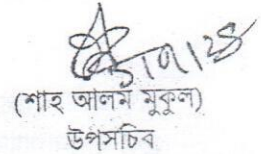 (শাহ আলম মুকুল)
উপসচিব